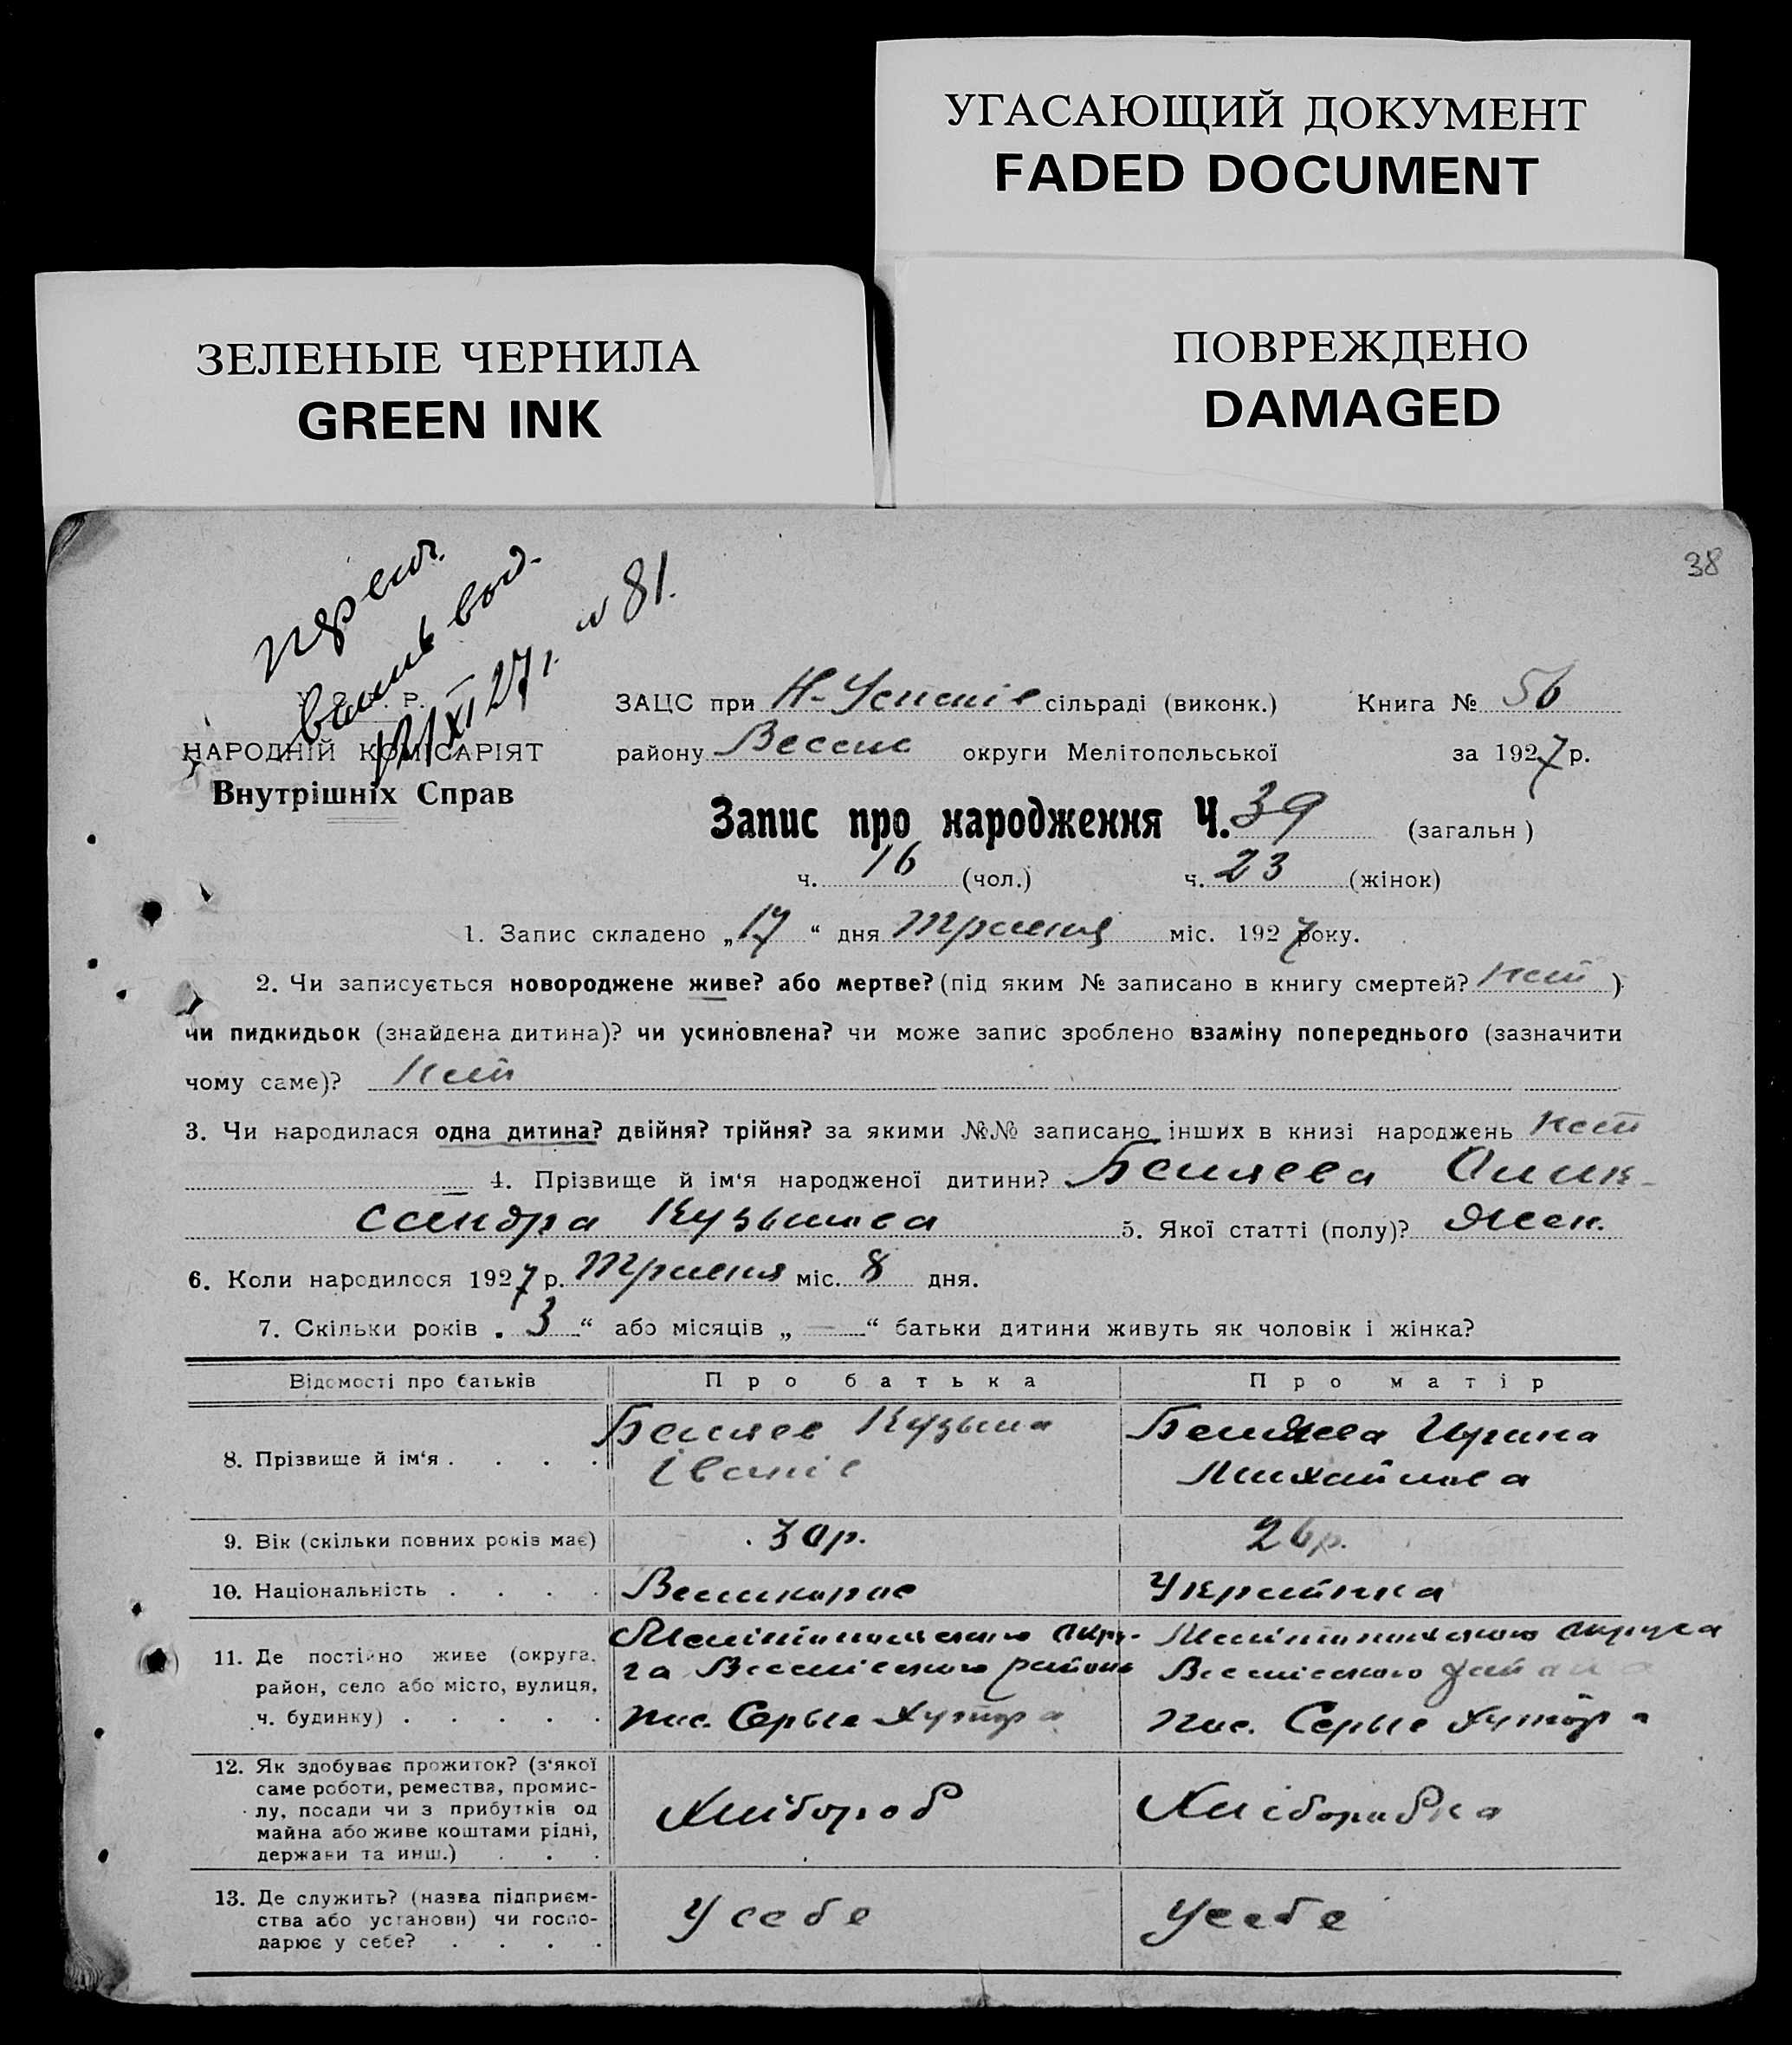 УГАСАЮЩИЙ ДОКУМЕНТ
FADED DOCUMENT
ЗЕЛЕНЫЕ ЧЕРНИЛА
GREEN INK
ПОВРЕЖДЕНО
DAMAGED
38
№ 81.
XI 27 г.
ЗАЦС при Н-Успенів сільраді (виконк.) Книга № 56
НАРОДНІЙ КОМІСАРІЯТ району Весели округи Мелітопольської за 1927 р.
Внутрішніх Справ
Запис про народження Ч. 39 (загальн)
ч. 16 (чол.) ч. 23 (жінок)
1. Запис складено „17“ дня Травня міс. 1927 року.
2. Чи записується новороджене живе? або мертве? (під яким № записано в книгу смертей? Нет)
чи пидкидьок (знайдена дитина)? чи усиновлена? чи може запис зроблено взаміну попереднього (зазначити
чому саме)? Нет
3. Чи народилася одна дитина? двійня? трійня? за якими №№ записано інших в книзі народжень Нет
4. Прізвище й ім‘я народженої дитини? Беляева Олик-
сандра Кузьмова 5. Якої статті (полу)? Жен.
6. Коли народилося 1927 р. Травня міс. 8 дня.
7. Скільки років „3“ або місяців „—“ батьки дитини живуть як чоловік і жінка?
Відомості про батьків Про батька Про матір
8. Прізвище й ім‘я . . . . Беляев Кузьма Беляева Ирина
Іванів Михайлова
9. Вік (скільки повних років має) 30 р. 26 р.
10. Національність . . . . Великорос Українка
11. Де постійно живе (округа, район, село або місто, вулиця, ч. будинку) . . . . . Мелітопольського Окру- Мелітопольського Округа
га Веселівського района Веселівського района
пос. Серые Хутора пос. Серые Хутора
12. Як здобуває прожиток? (з‘якої
саме роботи, ремества, промис-
лу, посади чи з прибутків од
майна або живе коштами рідні,
держави та инш.) . . . Хлібороб Хліборобка
13. Де служить? (назва підприєм-
ства або установи) чи госпо-
дарює у себе? . . . . У себе У себе